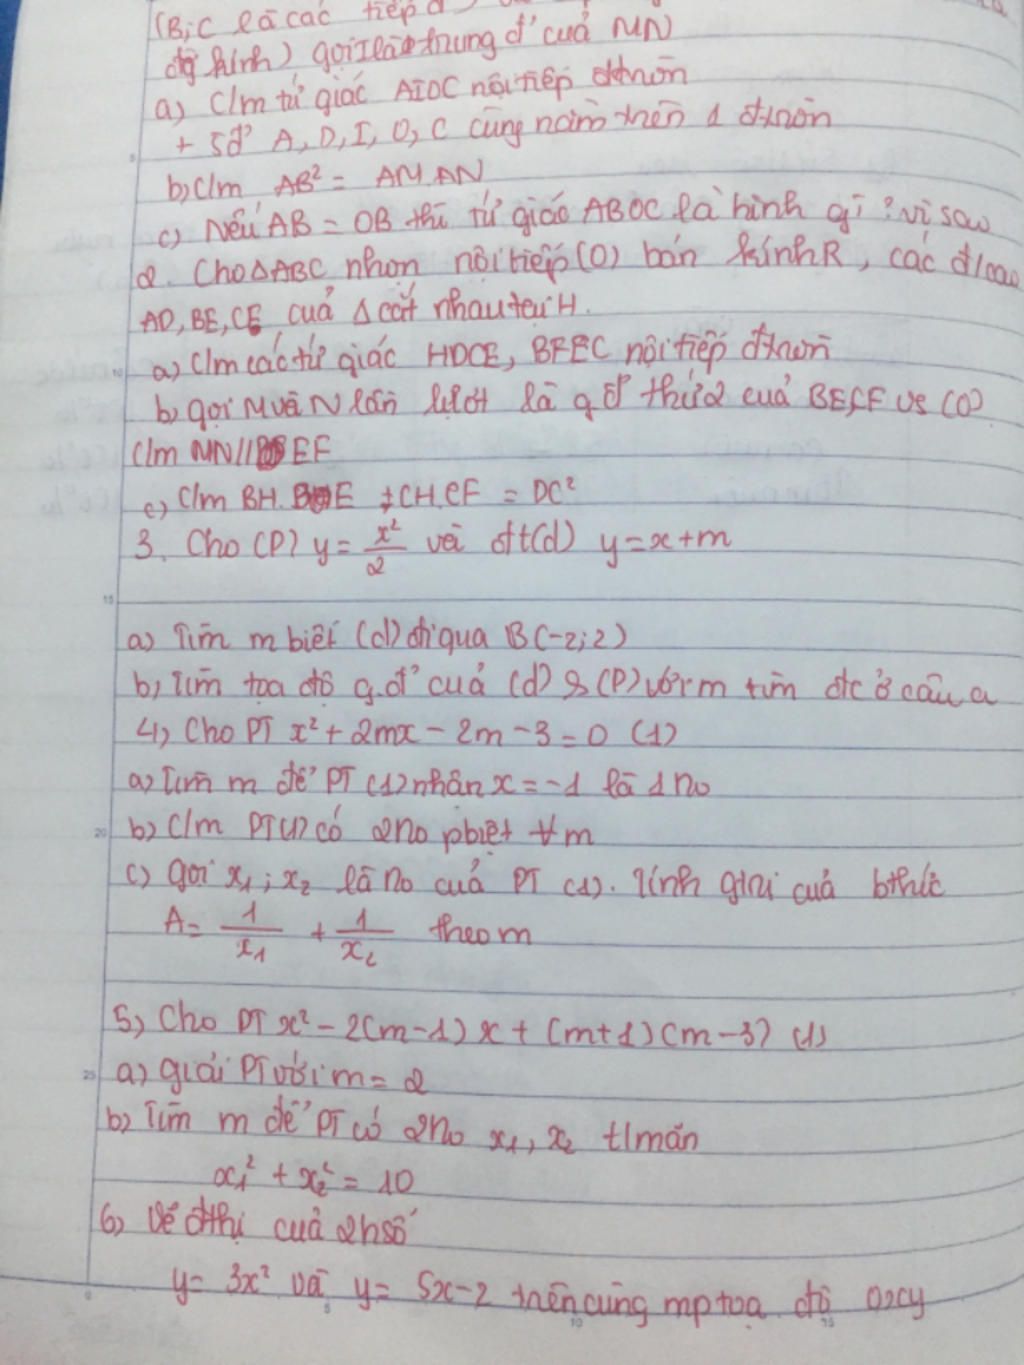 (B;C là các tiếp đ
gọi I là trung đ' của MN)
a) C/m tứ giác AIOC nội tiếp đtròn
+ 5đ' A, D, I, O, C cùng nằm trên 1 đtròn
b) C/m AB² = AM.AN
c) Nếu AB = OB thì tứ giác ABOC là hình gì? vì sao
2. Cho ΔABC nhọn nội tiếp (O) bán kính R, các đ/cao
AD, BE, CF của Δ cắt nhau tại H.
a) C/m các tứ giác HDCE, BFEC nội tiếp đtròn
b) gọi M và N lần lượt là g.đ' thứ 2 của BE, CF vs (O)
C/m MN// EF
c) C/m BH.BE + CH.CF = DC²
3. Cho (P) y = x²/2 và đt(d) y = x + m
a) Tìm m biết (d) đi qua B(-2;2)
b) Tìm tọa độ g.đ' của (d) & (P) với m tìm đc ở câu a
4) Cho PT x² + 2mx - 2m - 3 = 0 (1)
a) Tìm m để PT (1) nhận x = -1 là 1 no
b) C/m PT(1) có 2no pbiệt ∀m
c) gọi x₁; x₂ là no của PT (1). Tính gtrị của bthức
A = 1/x₁ + 1/x₂ theo m
5) Cho PT x² - 2(m-1)x + (m+1)(m-3) (1)
a) giải PT với m = 2
b) Tìm m để PT có 2no x₁, x₂ t/mãn
x₁² + x₂² = 10
6) Vẽ đthị của 2 hsố
y = 3x² và y = 5x-2 trên cùng mp tọa độ Oxy